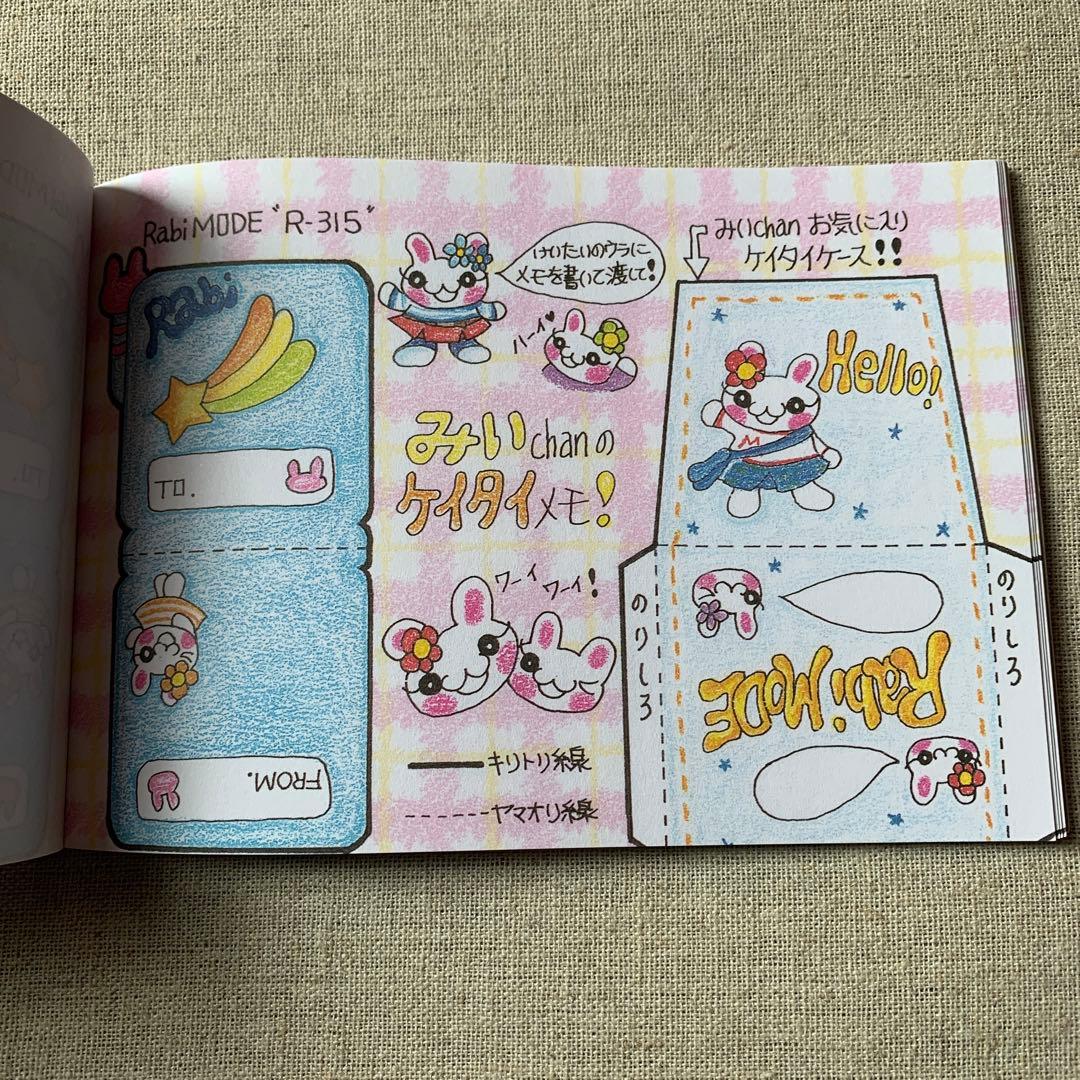 Rabi MODE "R-315"
Rabi
TO.
FROM.
けいたいのウラに
メモを書いて渡して!
ハーイ♥
みいchanの
ケイタイメモ!
ワーイ
ワーイ!
キリトリ線
ヤマオリ線
みいchan お気に入り
ケイタイケース!!
Hello!
M
のりしろ
Rabi MODE
のりしろ